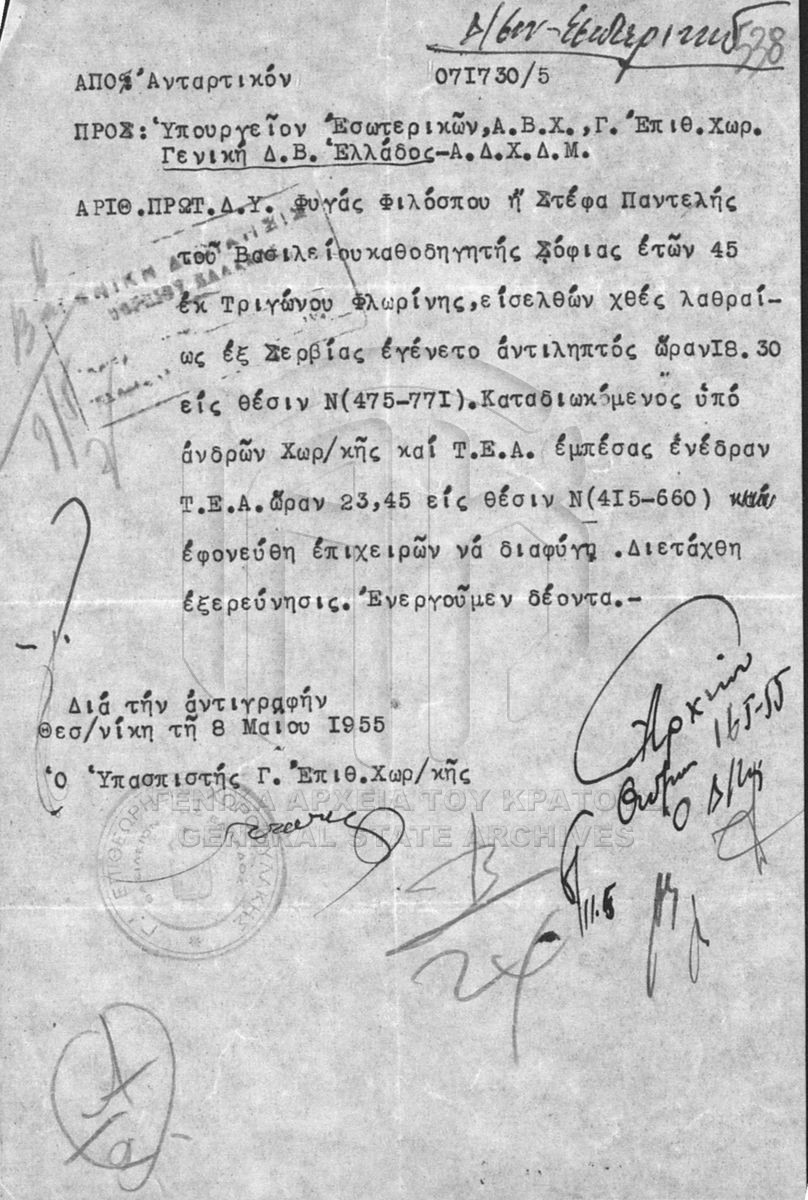 Δ/σιν Εσωτερικού
538
ΑΠΟ: Ἀνταρτικόν 071730/5
ΠΡΟΣ: Ὑπουργεῖον Ἐσωτερικῶν, Α.Β.Χ., Γ. Ἐπιθ. Χωρ.
Γενική Δ.Β. Ἑλλάδος-Α.Δ.Χ.Δ.Μ.
ΑΡΙΘ.ΠΡΩΤ.Δ.Υ. Φυγάς Φιλόσπου ἤ Στέφα Παντελῆς
τοῦ Βασιλείουκαθοδηγητής Σόφιας ἐτῶν 45
ἐκ Τριγώνου Φλωρίνης, εἰσελθών χθές λαθραί-
ως ἐξ Σερβίας ἐγένετο ἀντιληπτός ὥραν18.30
εἰς θέσιν Ν(475-771). Καταδιωκόμενος ὑπό
ἀνδρῶν Χωρ/κῆς καί Τ.Ε.Α. ἐμπέσας ἐνέδραν
Τ.Ε.Α. ὥραν 23,45 εἰς θέσιν Ν(415-660) καί
ἐφονεύθη ἐπιχειρῶν νά διαφύγῃ .Διετάχθη
ἐξερεύνησις. Ἐνεργοῦμεν δέοντα.-
ΓΕΝΙΚΗ ΔΙΟΙΚΗΣΙΣ
ΒΟΡΕΙΟΥ ΕΛΛΑΔΟΣ
Διά τήν ἀντιγραφήν
Θεσ/νίκη τῇ 8 Μαιου 1955
Ὁ Ὑπασπιστής Γ. Ἐπιθ. Χωρ/κῆς
Ἀρχεῖον
16-5-55
Ο Δ/της
11.5
ΓΕΝΙΚΑ ΑΡΧΕΙΑ ΤΟΥ ΚΡΑΤΟΥΣ
GENERAL STATE ARCHIVES